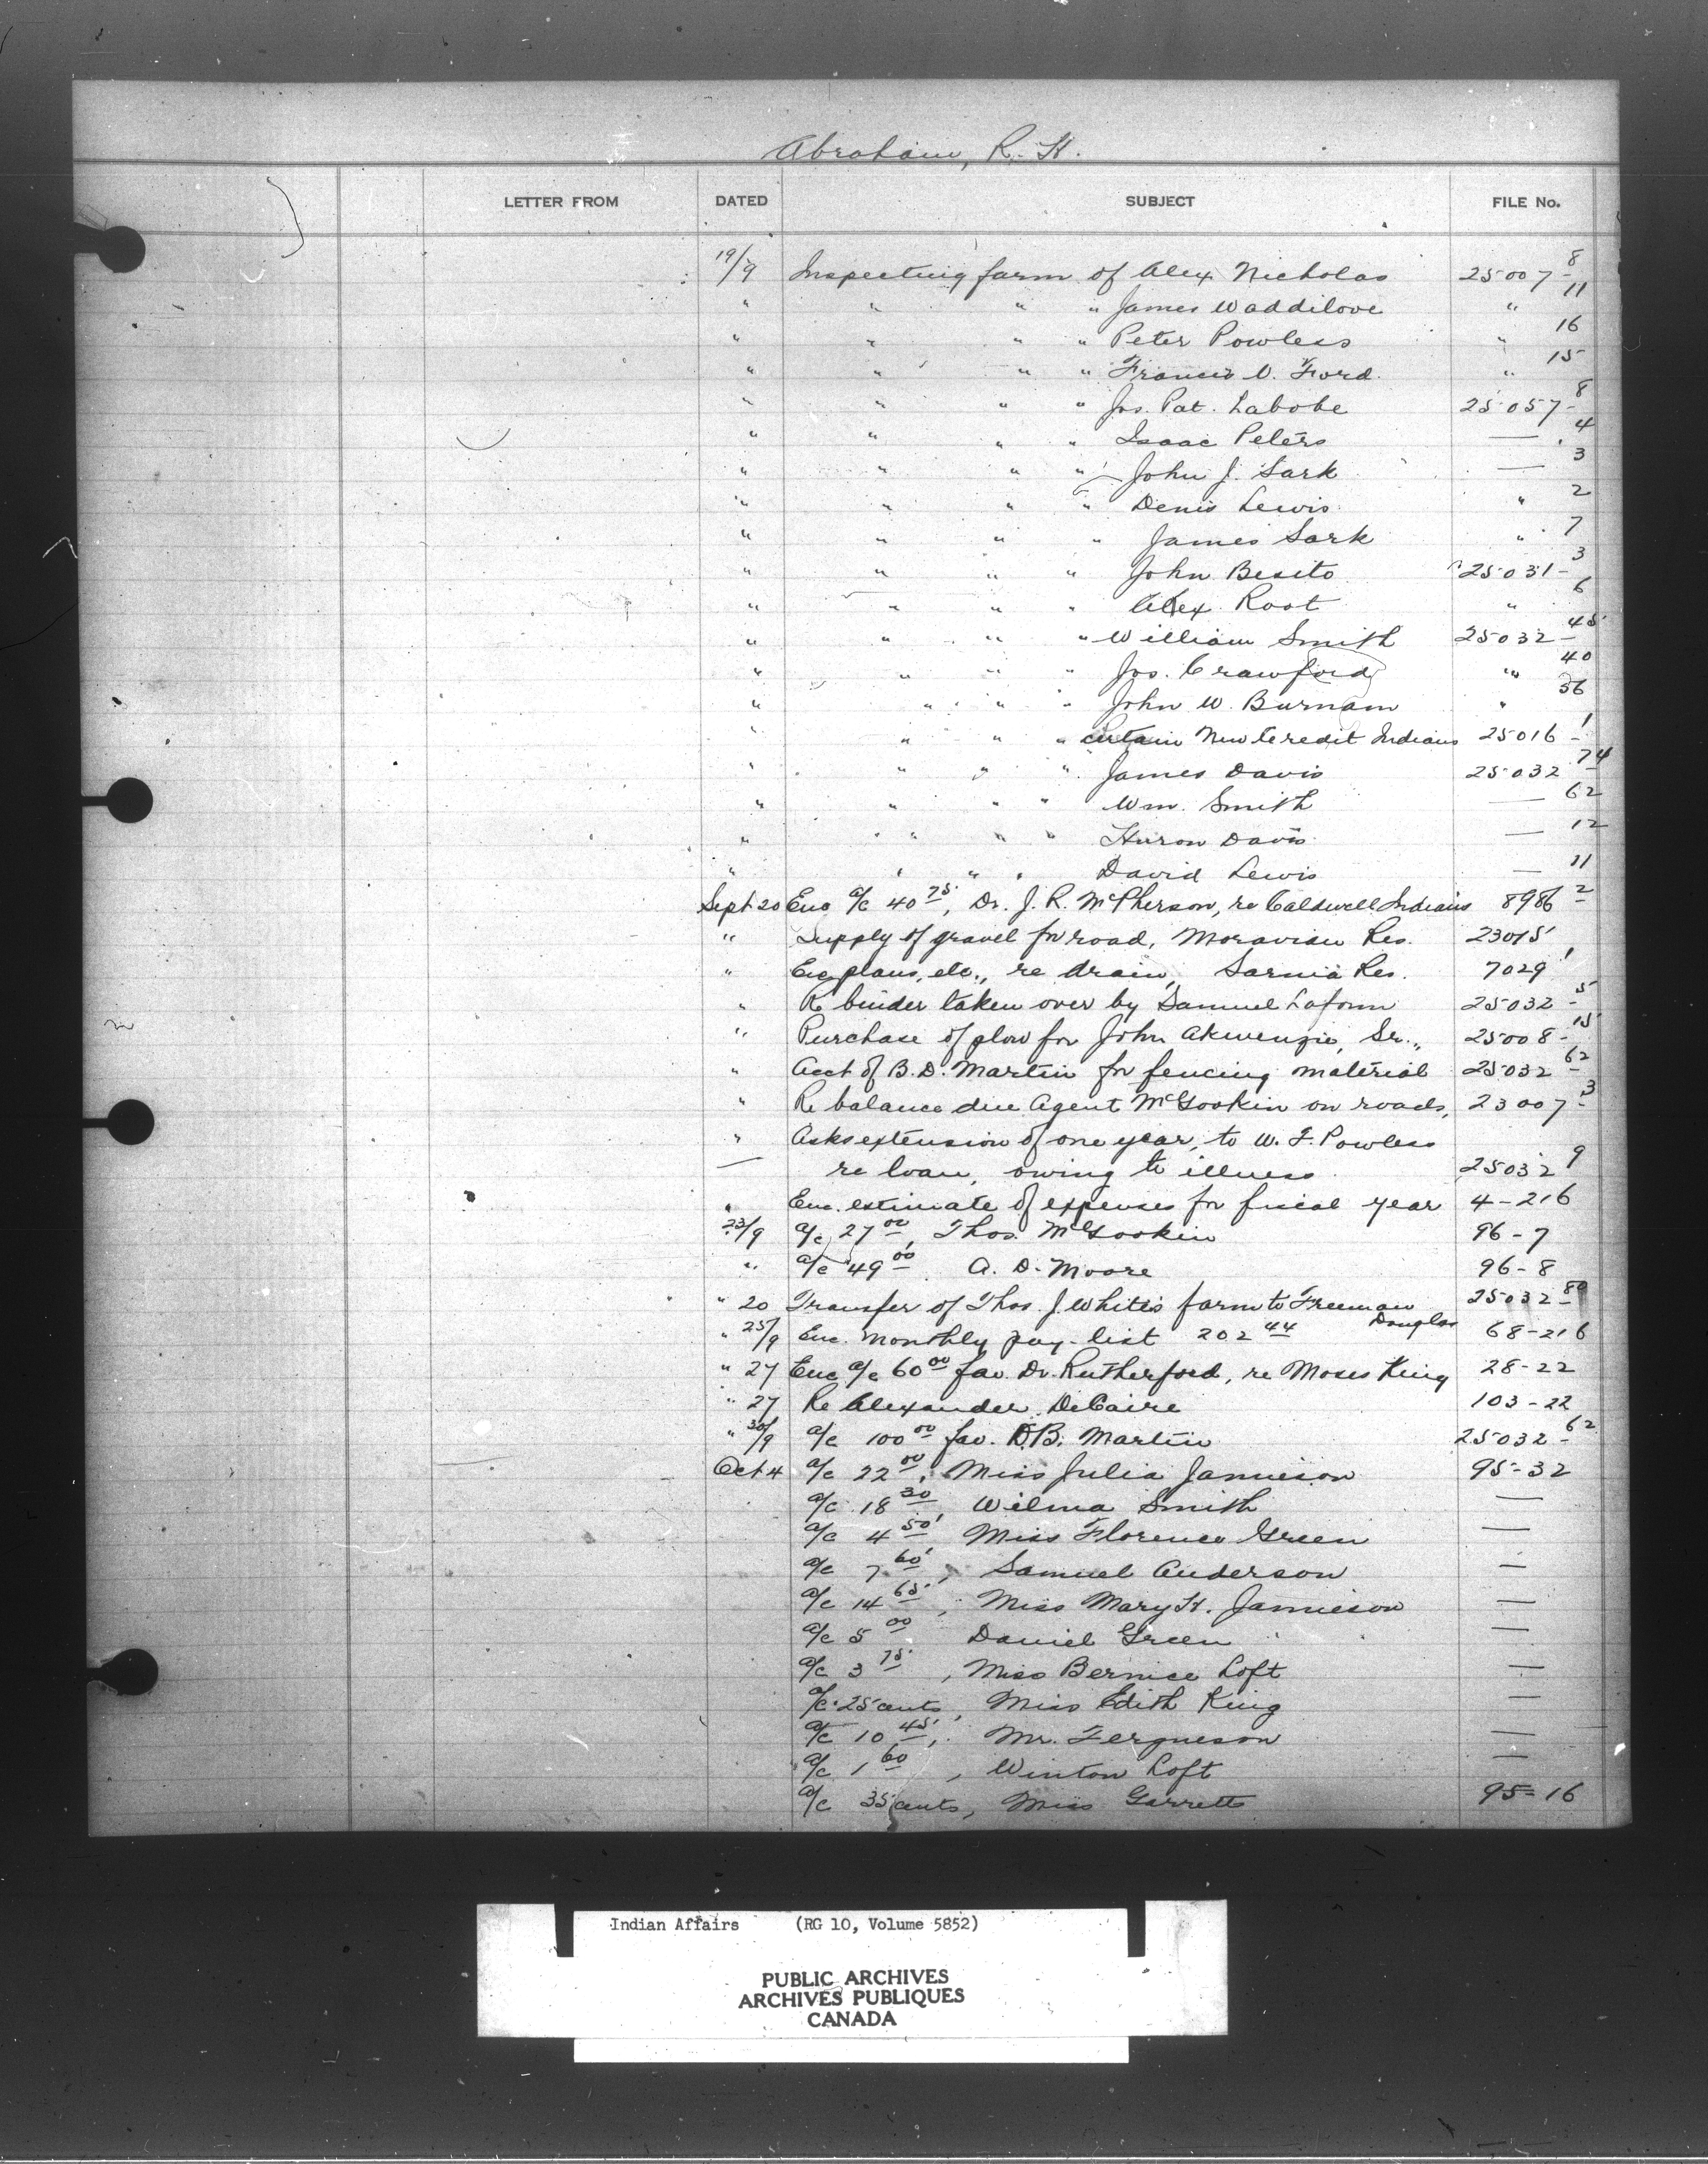 Abraham, R. H.
LETTER FROM DATED SUBJECT FILE No.
19/9 Inspecting farm of Alex Nicholas 25007-8
" " " " James Waddilove " 11
" " " " Peter Powless " 16
" " " " Francis V. Ford " 15
" " " " Jos. Pat. Labobe 25057-8
" " " " Isaac Peters — 4
" " " " John J. Sark — 3
" " " " Denis Lewis " 2
" " " " James Sark " 7
" " " " John Besito 25031-3
" " " " Alex Root " 6
" " " " William Smith 25032-45
" " " " Jos. Crawford " 40
" " " " John W. Burnam " 36
" " " " certain New Credit Indians 25016-1
" " " " James Davis 25032-74
" " " " Wm. Smith — 62
" " " " Huron Davis — 12
" " " " David Lewis — 11
Sept 20 Enc a/c 40 75, Dr. J. R. McPherson, re Caldwell Indians 8986-2
" Supply of gravel for road, Moravian Res. 23015
" Enc plans, etc., re drain, Sarnia Res. 7029-1
" Re binder taken over by Samuel Laforme 25032-5
" Purchase of plow for John Akwenzie, Sr., 25008-15
" Acct of B. D. Martin for fencing material 25032-62
" Re balance due Agent McGookin on roads, 23007-3
" Asks extension of one year, to W. F. Powless
— re loan, owing to illness 25032-9
" Enc. estimate of expenses for fiscal year 4-216
23/9 a/c 27 00, Thos. McGookin 96-7
" a/c 49 00 A. D. Moore 96-8
" 20 Transfer of Thos. J. White's farm to Freeman 25032-80
Douglas
" 25/9 Enc. monthly pay-list 202 44 68-216
" 27 Enc a/c 60 00 fav. Dr. Rutherford, re Moses King 28-22
" 27 Re Alexander DeCaire 103-22
" 30/9 a/c 100 00 fav. D.B. Martin 25032-62
Oct 4 a/c 22 00, Miss Julia Jamieson 95-32
a/c 18 30 Wilma Smith —
a/c 4 50, Miss Florence Green —
a/c 7 60, Samuel Anderson —
a/c 14 65, Miss Mary H. Jamieson —
a/c 5 00 Daniel Green —
a/c 3 75, Miss Bernice Loft —
a/c 25 cents, Miss Edith King —
a/c 10 45, Mr. Fergueson —
a/c 1 60, Winton Loft —
a/c 35 cents, Miss Garrett 95-16
Indian Affairs (RG 10, Volume 5852)
PUBLIC ARCHIVES
ARCHIVES PUBLIQUES
CANADA